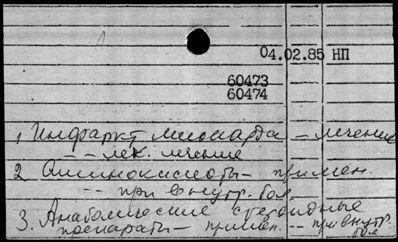 04.02.85 НП
60473
60474
1. Инфаркт миокарда – лечение
– – лек. лечение
2. Аминокислоты – примен.
– – при внутр. бол.
3. Анаболические стероидные
препараты – примен. – – при внутр.
бол.